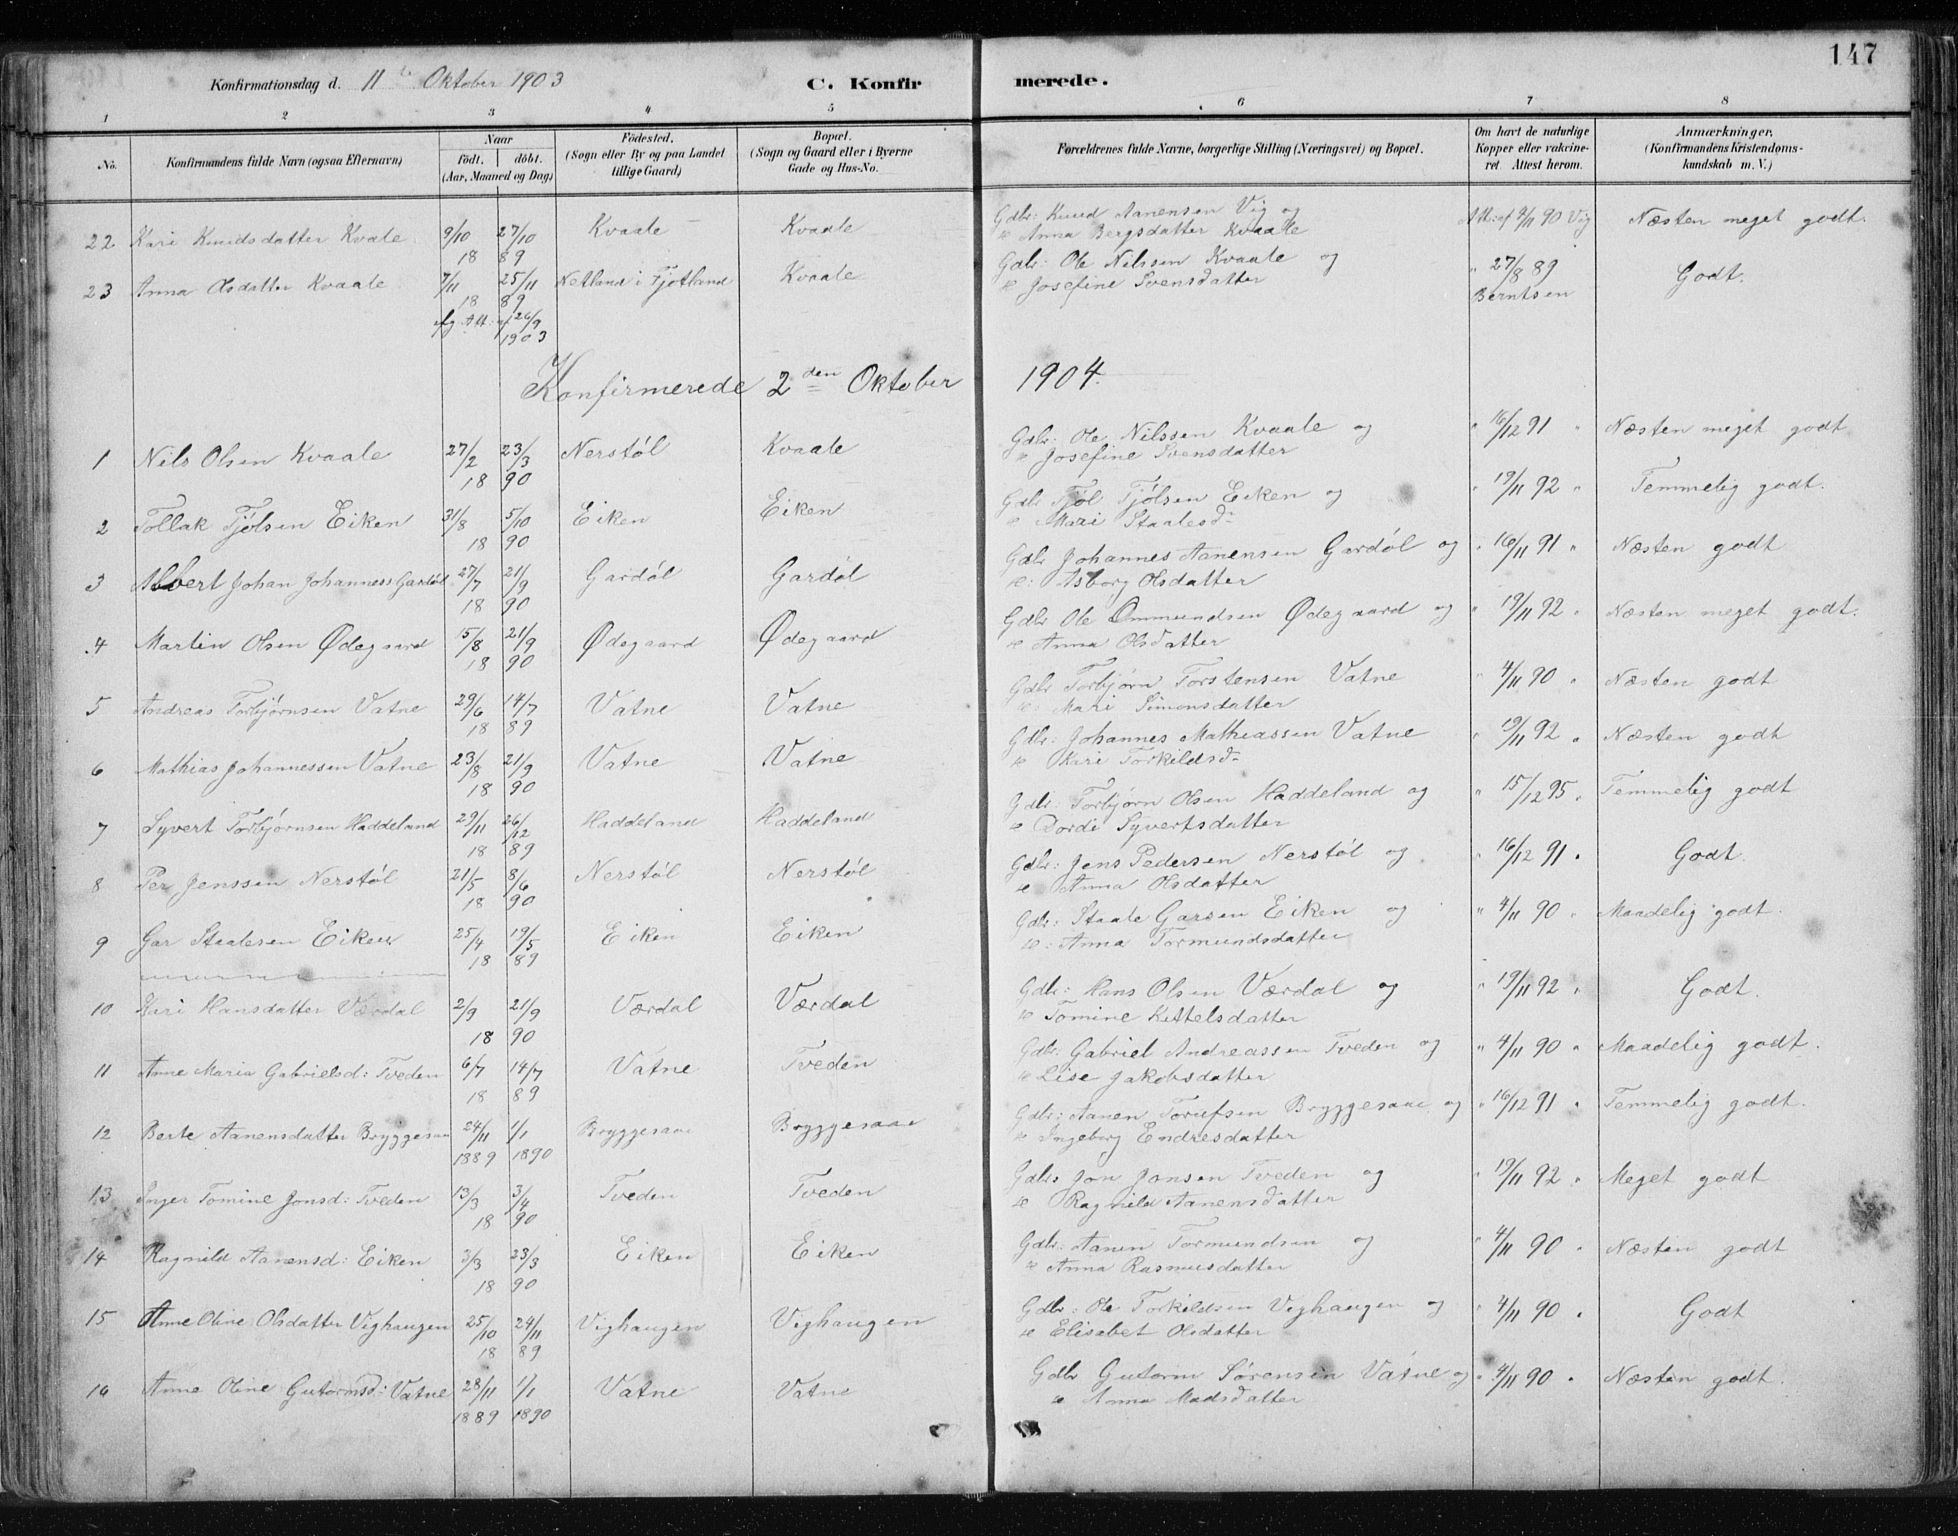 147
Konfirmationsdag d. 11te Oktober 1903 C. Konfirmerede.
1 2 3 4 5 6 7 8
No. Konfirmandens fulde Navn (ogsaa Efternavn) Naar födt. döbt. (Aar, Maaned og Dag) Födested. (Sogn eller By og paa Landet tillige Gaard) Bopæl. (Sogn og Gaard eller i Byerne Gade og Hus-No. Forældrenes fulde Navne, borgerlige Stilling (Næringsvei) og Bopæl. Om havt de naturlige Kopper eller vakcineret. Attest herom. Anmærkninger. (Konfirmandens Kristendomskundskab m. V.)
22 Kari Knudsdatter Kvale 9/10 27/10 Kvaale Kvaale Gdbr: Knud Aanensen Vig og Att: af 4/11 90 Vig Næsten meget godt.
18 89 Anna Bergsdatter Kvaale
23 Anna Olsdatter Kvaale 7/11 25/11 Netland i Fjotland Kvaale Gdbr: Ole Nilssen Kvaale og " 27/8 89 Godt.
18 89 Josefine Svensdatter Berntsen
ifg Att: af 26/9
1903
Konfirmerede 2den Oktober 1904.
1 Nils Olsen Kvaale 27/2 23/3 Nerstöl Kvaale Gdbr: Ole Nilssen Kvaale og " 16/12 91 " Næsten meget godt
18 90 " Josefine Svensdatter
2 Tollak Tjölsen Eiken 31/8 5/10 Eiken Eiken Gdbr Tjöl Tjölsen Eiken og " 19/11 92 " Temmelig godt.
18 90 Mari Staalesd
3 Albert Johan Johanness Gardöl 27/7 21/9 Gardöl Gardöl Gdbr Johannes Aanensen Gardöl og " 16/11 91 " Næsten godt
18 90 Asborg Olsdatter
4 Martin Olsen Ødegaard 15/8 21/9 Ødegaard Ødegaard Gdbr Ole Ommundsen Ødegaard og " 19/11 92 " Næsten meget godt.
18 90 Anna Olsdatter
5 Andreas Torbjørnsen Vatne 29/6 14/7 Vatne Vatne Gdbr Torbjørn Torstensen Vatne " 4/11 90 " Næsten godt
18 89 Mari Simonsdatter
6 Mathias Johannessen Vatne 23/8 21/9 Vatne Vatne Gdbr: Johannes Mathiassen Vatne " 19/11 92 " Næsten godt
18 90 Kari Torkildsd
7 Syvert Torbjørnsen Haddeland 29/11 26/12 Haddeland Haddeland Gdbr: Torbjørn Olsen Haddeland og " 15/12 95 " Temmelig godt
18 89 Dordi Syvertsdatter
8 Per Jenssen Nerstöl 21/5 8/6 Nerstöl Nerstöl Gdbr: Jens Pedersen Nerstöl og " 16/12 91 " Godt.
18 90 Anna Olsdatter
9 Gar Staalesen Eiken 25/4 19/5 Eiken Eiken Gdbr: Staale Garsen Eiken og " 4/11 90 " Maadelig godt.
18 89 Anna Tormundsdatter
10 Kari Hansdatter Værdal 2/9 21/9 Værdal Værdal Gdbr: Hans Olsen Værdal og " 19/11 92 " Godt.
18 90 Tomine Kittelsdatter
11 Anne Maria Gabrielsd: Tveden 6/7 14/7 Vatne Tveden Gdbr: Gabriel Andreassen Tveden og " 4/11 90 " Maadelig godt.
18 89 Lise Jakobsdatter
12 Berte Aanensdatter Bryggesaa 24/11 1/1 Bryggesaae Bryggesaae Gdbr: Aanen Torufsen Bryggesaae og " 16/12 91 " Temmelig godt.
1889 1890 Ingeborg Endresdatter
13 Inger Tomine Jonsd: Tveden 13/3 3/4 Tveden Tveden Gdbr Jon Jonsen Tveden og " 19/11 92 " Meget godt
18 90 Ragnild Aanensdatter
14 Ragnild Aanensd: Eiken 3/3 23/3 Eiken Eiken Gdbr: Aanen Tormundsen og " 4/11 90 " Næsten godt
18 90 Anna Rasmusdatter
15 Anne Oline Olsdatter Vighaugen 25/10 24/11 Vighaugen Vighaugen Gdbr: Ole Torkildsen Vighaugen og " 4/11 90 " Godt
18 89 Elisabet Olsdatter
16 Anne Oline Gutormsd: Vatne 28/11 1/1 Vatne Vatne Gdbr Gutorm Sørensen Vatne og " 4/11 90 " Næsten godt.
1889 1890 Anna Madsdatter